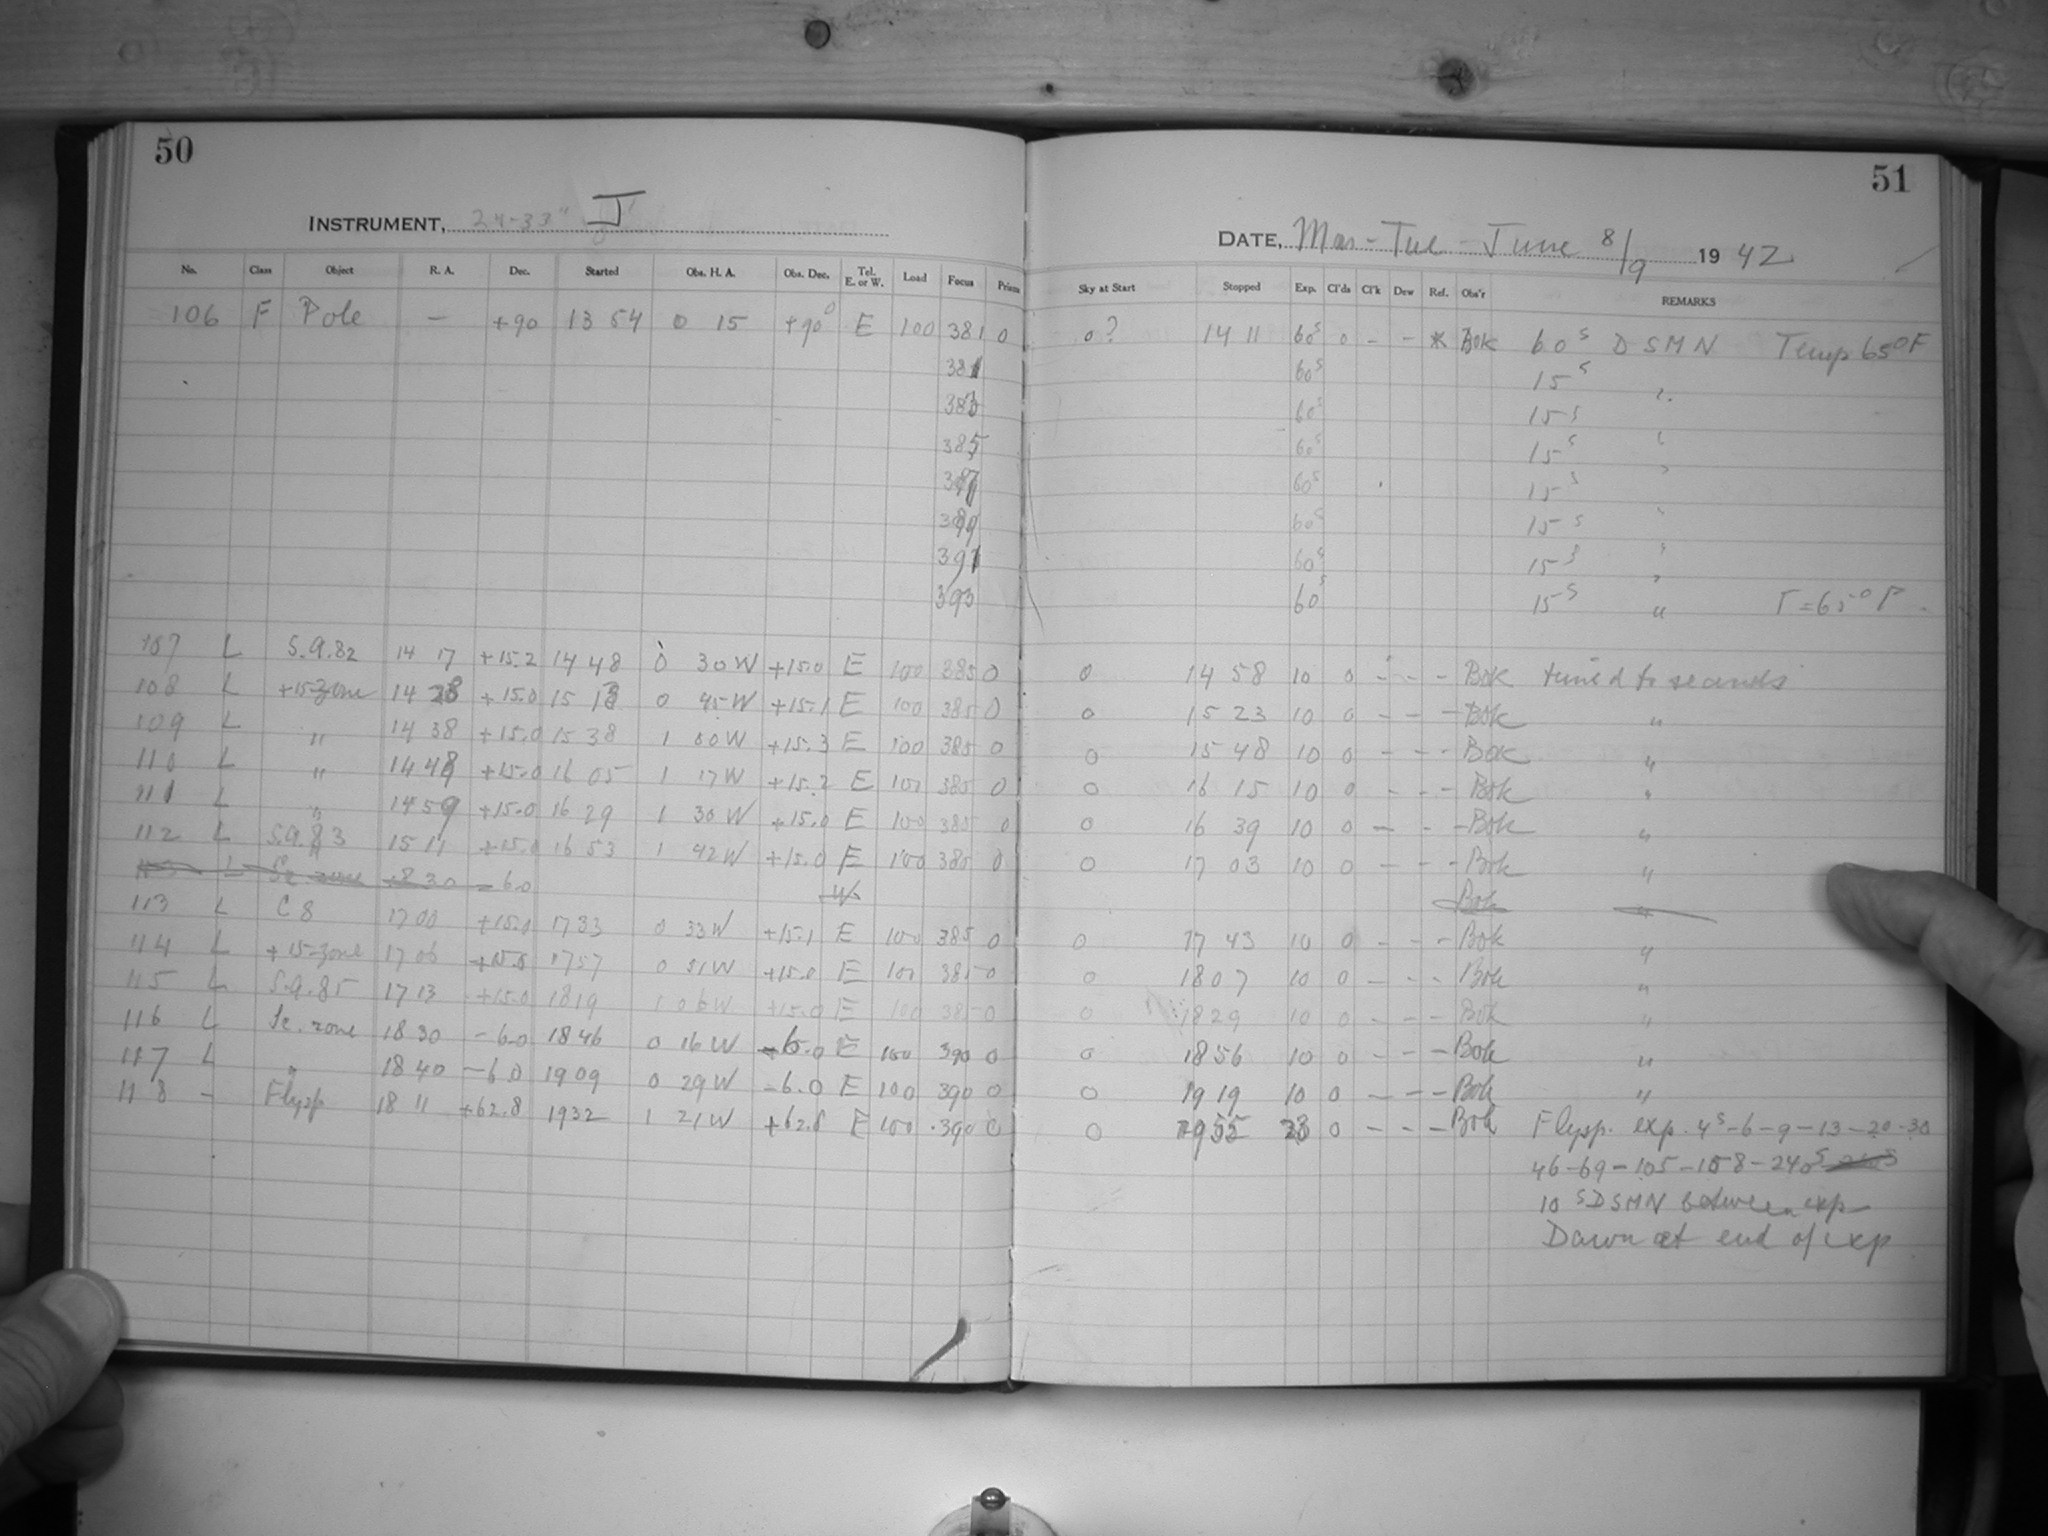 50
INSTRUMENT, 24-33" J
No. Class Object R. A. Dec. Started Obs. H. A. Obs. Dec. Tel. E. or W. Load Focus Prism
106 F Pole — +90 13 54 0 15 +90° E 100 381 0
381
383
385
387
389
391
393
107 L S.A.82 14 17 +15.2 14 48 0 30W +15.0 E 100 385 0
108 L +15-zone 14 28 +15.0 15 13 0 45W +15.1 E 100 385 0
109 L " 14 38 +15.0 15 38 1 00W +15.3 E 100 385 0
110 L " 14 48 +15.0 16 05 1 17W +15.2 E 100 385 0
111 L " 14 59 +15.0 16 29 1 30W +15.0 E 100 385 0
112 L S.A.83 15 11 +15.0 16 53 1 42W +15.0 E 100 385 0
113 L Sc. zone 18 30 -6.0 W
113 L C 8 17 00 +15.0 17 33 0 33W +15.1 E 100 385 0
114 L +15-zone 17 06 +15.0 17 57 0 51W +15.0 E 100 385 0
115 L S.A.85 17 13 +15.0 18 19 1 06W +15.0 E 100 385 0
116 L Sc. zone 18 30 -6.0 18 46 0 16W -6.0 E 100 390 0
117 L " 18 40 -6.0 19 09 0 29W -6.0 E 100 390 0
118 - Flysp 18 11 +62.8 19 32 1 21W +62.8 E 100 390 0
51
DATE, Mon-Tue-June 8/9 1942
Sky at Start Stopped Exp. Cl'ds Cl'k Dew Ref. Obs'r REMARKS
0? 14 11 60s 0 - - * Bok 60s DSMN Temp 65°F
60s 15s "
60s 15s "
60s 15s "
60s 15s "
60s 15s "
60s 15s "
60s 15s " T=65°F.
0 14 58 10 0 - - - Bok timed to seconds
0 15 23 10 0 - - - Bok "
0 15 48 10 0 - - - Bok "
0 16 15 10 0 - - - Bok "
0 16 39 10 0 - - - Bok "
0 17 03 10 0 - - - Bok "
Bok "
0 17 43 10 0 - - - Bok "
0 18 07 10 0 - - - Bok "
0 18 29 10 0 - - - Bok "
0 18 56 10 0 - - - Bok "
0 19 19 10 0 - - - Bok "
0 19 55 23 0 - - - Bok Flysp. exp. 4s-6-9-13-20-30
46-69-105-158-240s
10s DSMN between exp
Dawn at end of exp